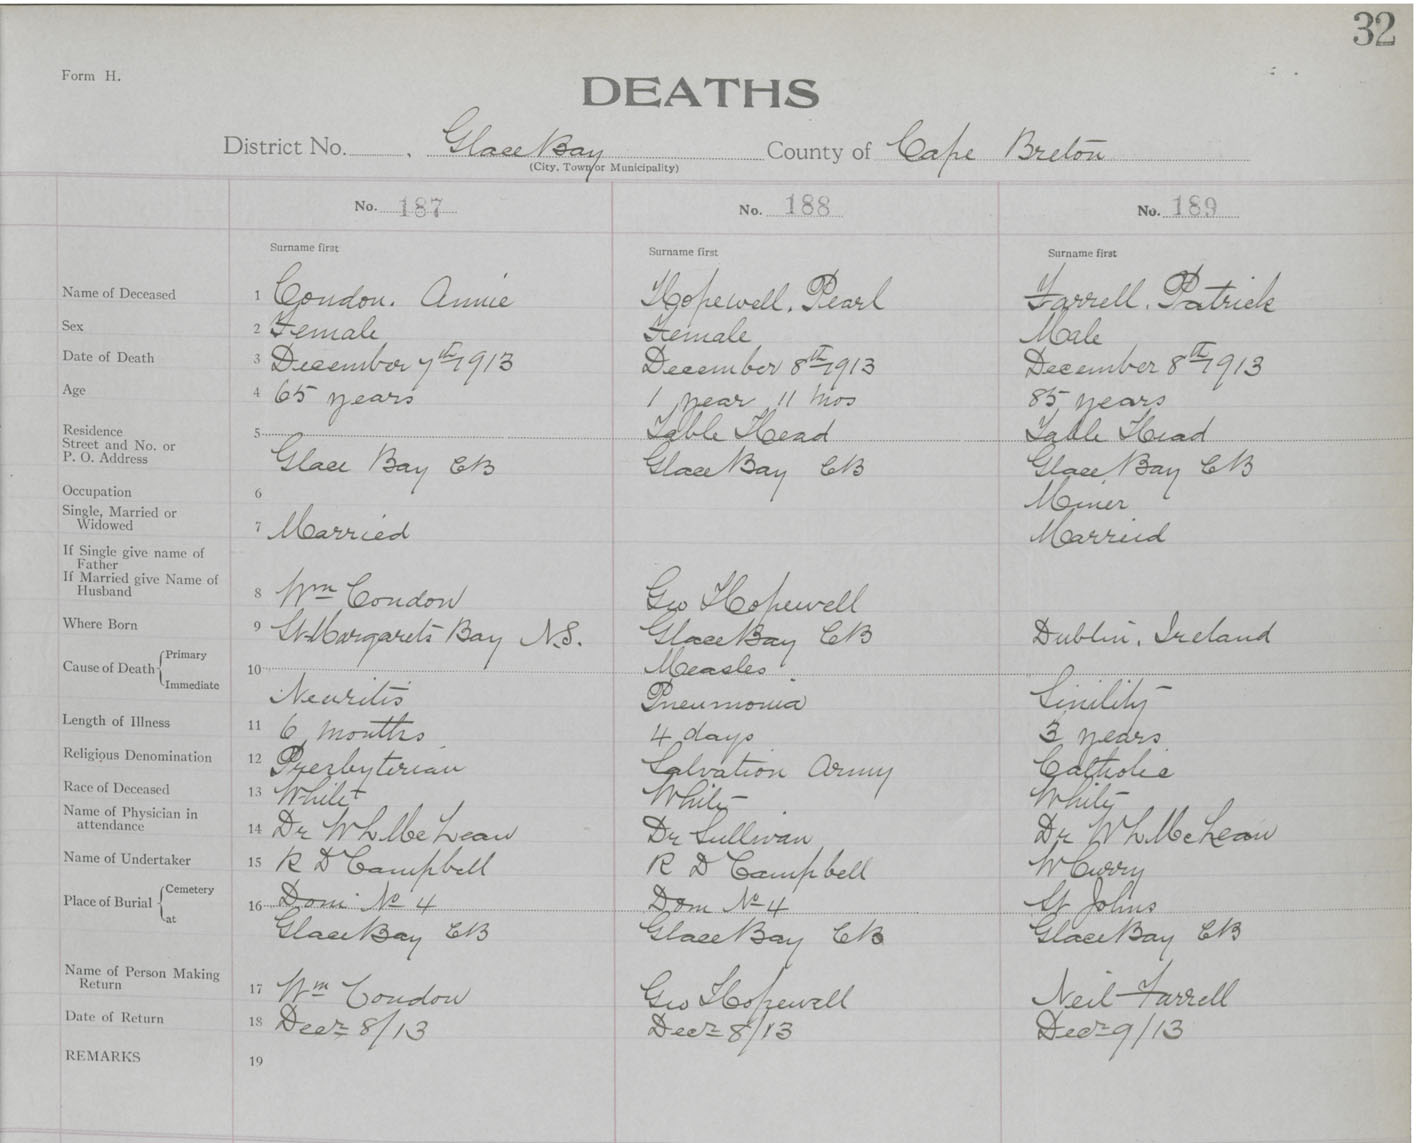 32
Form H.
DEATHS
District No. Glace Bay County of Cape Breton
(City, Town or Municipality)
No. 187 No. 188 No. 189
Surname first Surname first Surname first
Name of Deceased 1 Condon. Annie Hopewell. Pearl Farrell. Patrick
Sex 2 Female Female Male
Date of Death 3 December 7th 1913 December 8th 1913 December 8th 1913
Age 4 65 years 1 year 11 mos 85 years
Residence 5 Table Head Table Head
Street and No. or
P. O. Address Glace Bay CB Glace Bay CB Glace Bay CB
Occupation 6 Miner
Single, Married or
Widowed 7 Married Married
If Single give name of
Father
If Married give Name of
Husband 8 Wm Condon Geo Hopewell
Where Born 9 St Margarets Bay N.S. Glace Bay CB Dublin, Ireland
Cause of Death Primary 10 Measles
Immediate Neuritis Pneumonia Sinility
Length of Illness 11 6 months 4 days 3 years
Religious Denomination 12 Presbyterian Salvation Army Catholic
Race of Deceased 13 White White White
Name of Physician in
attendance 14 Dr W L McLean Dr Sullivan Dr W L McLean
Name of Undertaker 15 R D Campbell R D Campbell W Curry
Place of Burial Cemetery 16 Dom No 4 Dom No 4 St Johns
at Glace Bay CB Glace Bay CB Glace Bay CB
Name of Person Making
Return 17 Wm Condon Geo Hopewell Neil Farrell
Date of Return 18 Decr 8/13 Decr 8/13 Decr 9/13
REMARKS 19